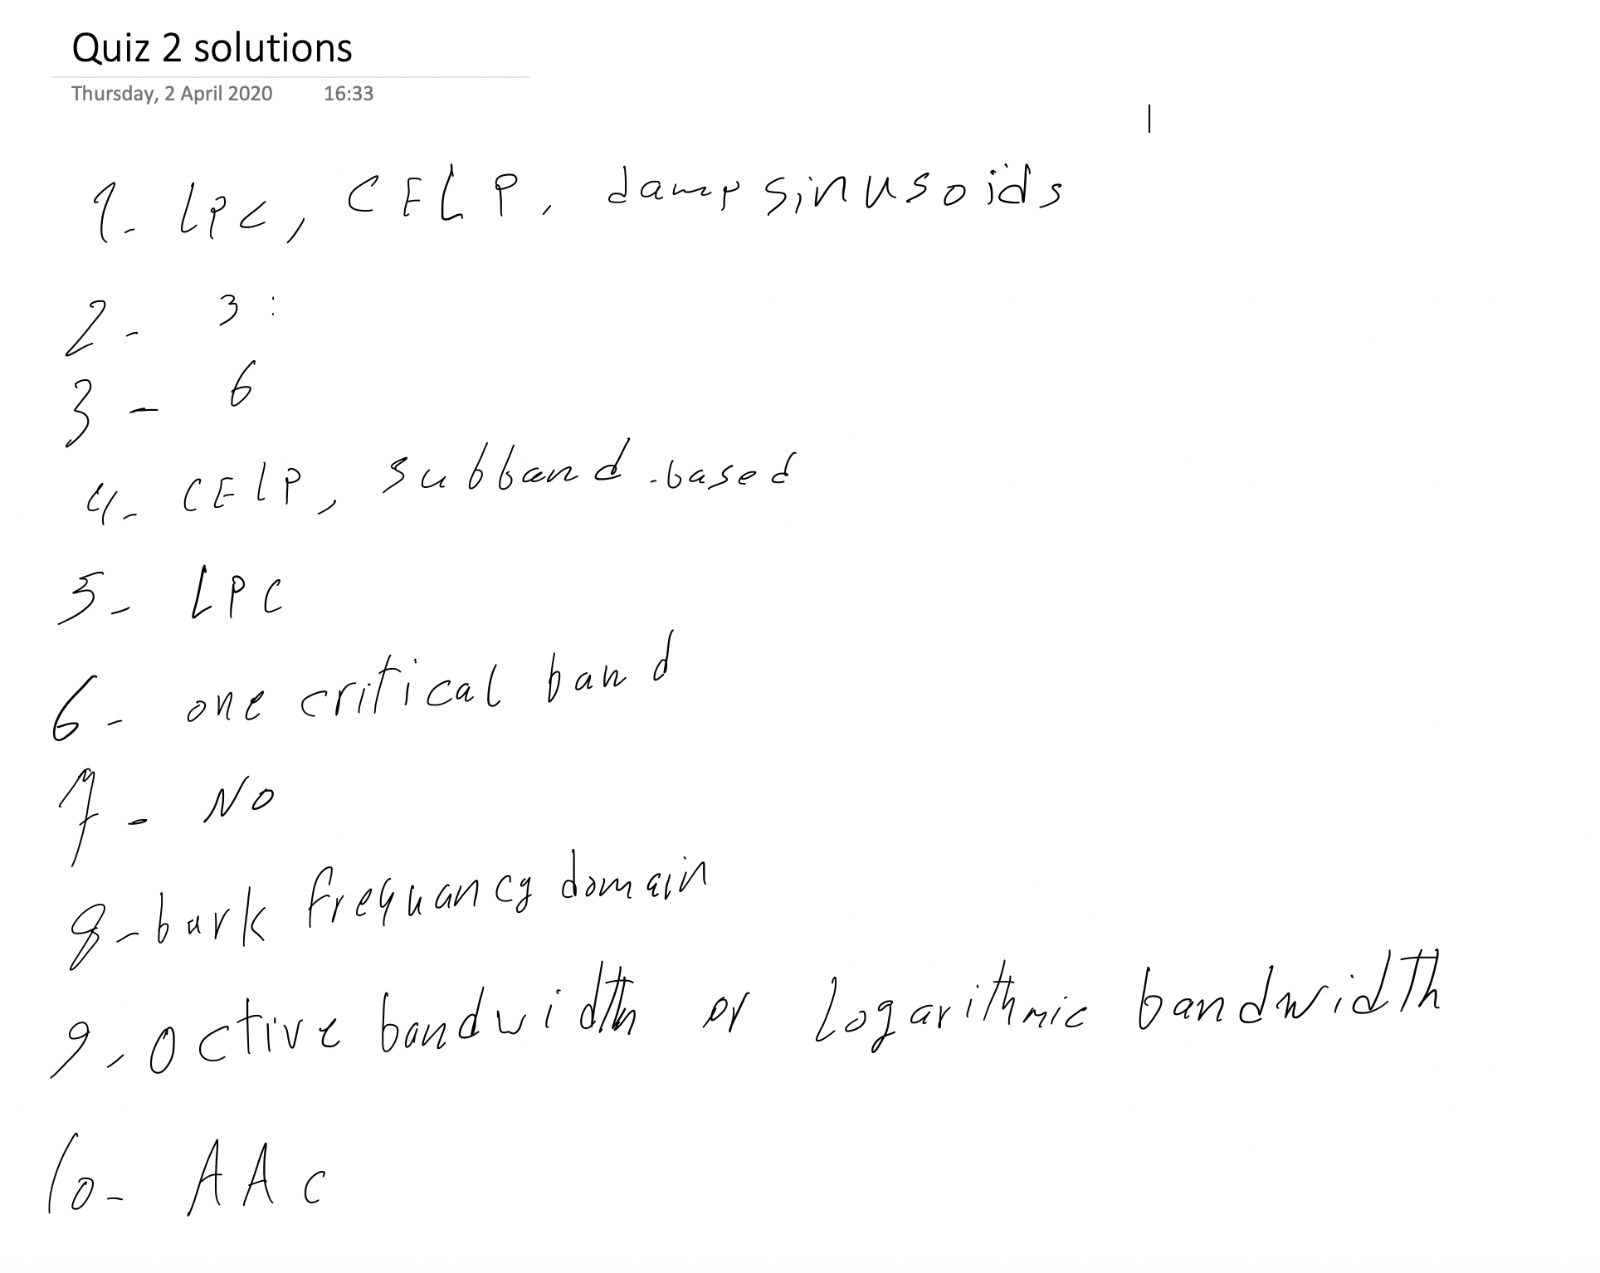 Quiz 2 solutions
Thursday, 2 April 2020 16:33
1- LPC, CELP, damp sinusoids
2- 3:
3- 6
4- CELP, subband-based
5- LPC
6- one critical band
7- NO
8- bark frequancy domain
9- octive bandwidth or Logarithmic bandwidth
10- AAC